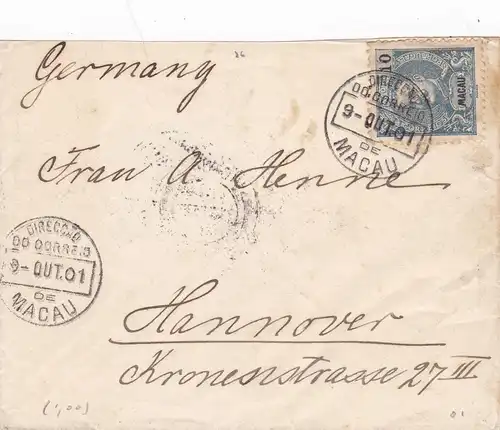 86
Germany
10
MACAU
DIRECÇÃO
DO CORREIO
9-OUT.01
DE
MACAU
Frau A Henne
DIRECÇÃO
DO CORREIO
9-OUT.01
DE
MACAU
Hannover
Kronenstrasse 27 III
(1,00)
01